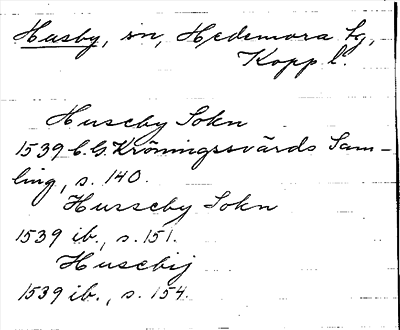 Husby, sn, Hedemora tg,
Kopp l.
Huseby Sokn
1539 C.G. Kröningssvärds Sam-
ling, s. 140.
Husseby Sokn
1539 ib., s. 151.
Husebij
1539 ib., s. 154.